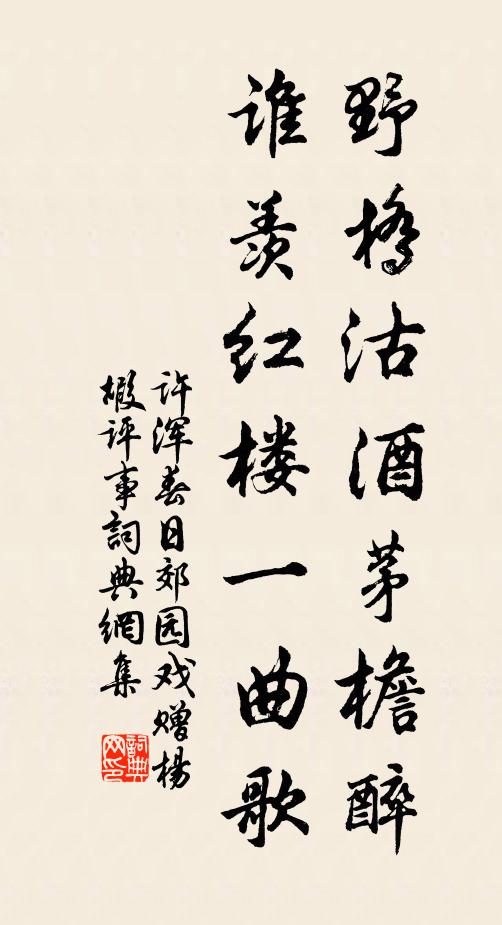 野桥沽酒茅檐醉
谁羡红楼一曲歌
许浑春日郊园戏赠杨
嘏评事詞典網集
詞典
网印